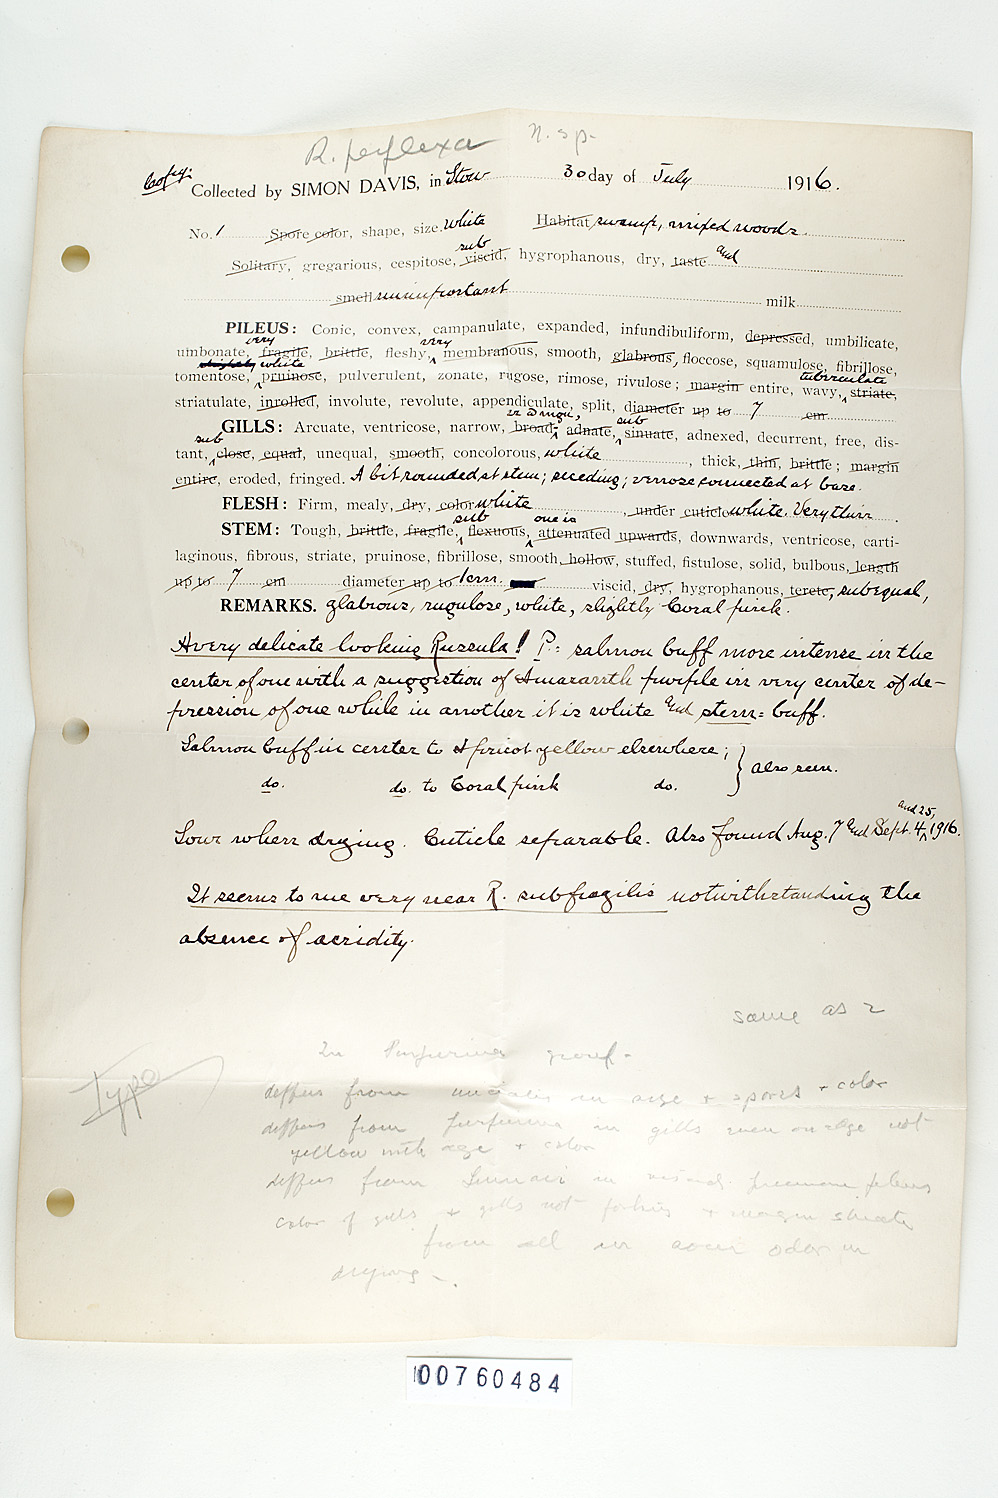 R. perplexa n. sp.
Copy. Collected by SIMON DAVIS, in Stow 30 day of July 1916.
No. 1 Spore color, shape, size. white Habitat, swamp, mixed woods.
sub and
Solitary, gregarious, cespitose, viscid, hygrophanous, dry, taste
smell unimportant milk
PILEUS: Conic, convex, campanulate, expanded, infundibuliform, depressed, umbilicate,
very very
umbonate, fragile, brittle, fleshy, membranous, smooth, glabrous, floccose, squamulose, fibrillose,
slightly white tuberculate
tomentose, pruinose, pulverulent, zonate, rugose, rimose, rivulose; margin entire, wavy, striate,
striatulate, inrolled, involute, revolute, appendiculate, split, diameter up to 7 cm
sub
GILLS: Arcuate, ventricose, narrow, broad; adnate, sinuate, adnexed, decurrent, free, dis-
sub
tant, close, equal, unequal, smooth, concolorous, white, thick, thin, brittle; margin
entire, eroded, fringed. A bit rounded at stem; receding; venose connected at base.
FLESH: Firm, mealy, dry, color white, under cuticle white. Very thin.
sub one is
STEM: Tough, brittle, fragile, flexuous, attenuated upwards, downwards, ventricose, carti-
laginous, fibrous, striate, pruinose, fibrillose, smooth, hollow, stuffed, fistulose, solid, bulbous, length
up to 7 cm diameter up to 1cm. viscid, dry, hygrophanous, terete, subequal,
REMARKS. glabrous, rugulose, white, slightly Coral pink.
A very delicate looking Russula! P= salmon buff more intense in the
center of one with a suggestion of Amaranth purple in very center of de-
pression of one while in another it is white and stem = buff.
Salmon buff in center to Apricot yellow elsewhere; } also seen.
do. do. to Coral pink do.
and 25,
Sour when drying. Cuticle separable. Also found Aug. 7 and Sept. 4, 1916.
It seems to me very near R. subfragilis notwithstanding the
absence of acridity.
same as 2
In Purpurina group -
Type
differs from in size + spores + color
differs from purpurina in gills even on edge not
yellow with age + color
differs from in viscid pileus
color of gills + gills not forking + margin striate
from all in sour odor in
drying -.
00760484